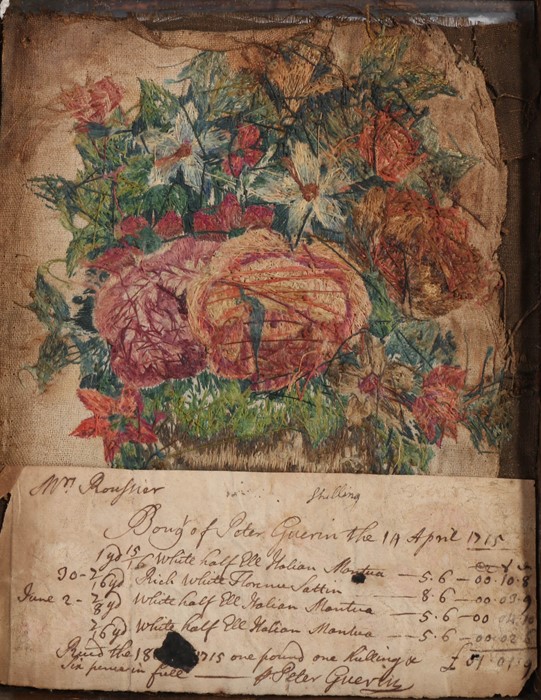 Mrs. Roussier Shilling
Bought of Peter Guerin the 14 April 1715
1 yd White half Ell Italian Mantua — 5.6 — 00.10.8
30 - Rich White Florence Sattin — 8.6 — 00.03.9
June 2 - yd White half Ell Italian Mantua — 5.6 — 00
yd White half Ell Italian Mantua — 5.6 — 00.02.
Recd the 18 1715 one pound one shilling & £
Six pence in full — Peter Guerin